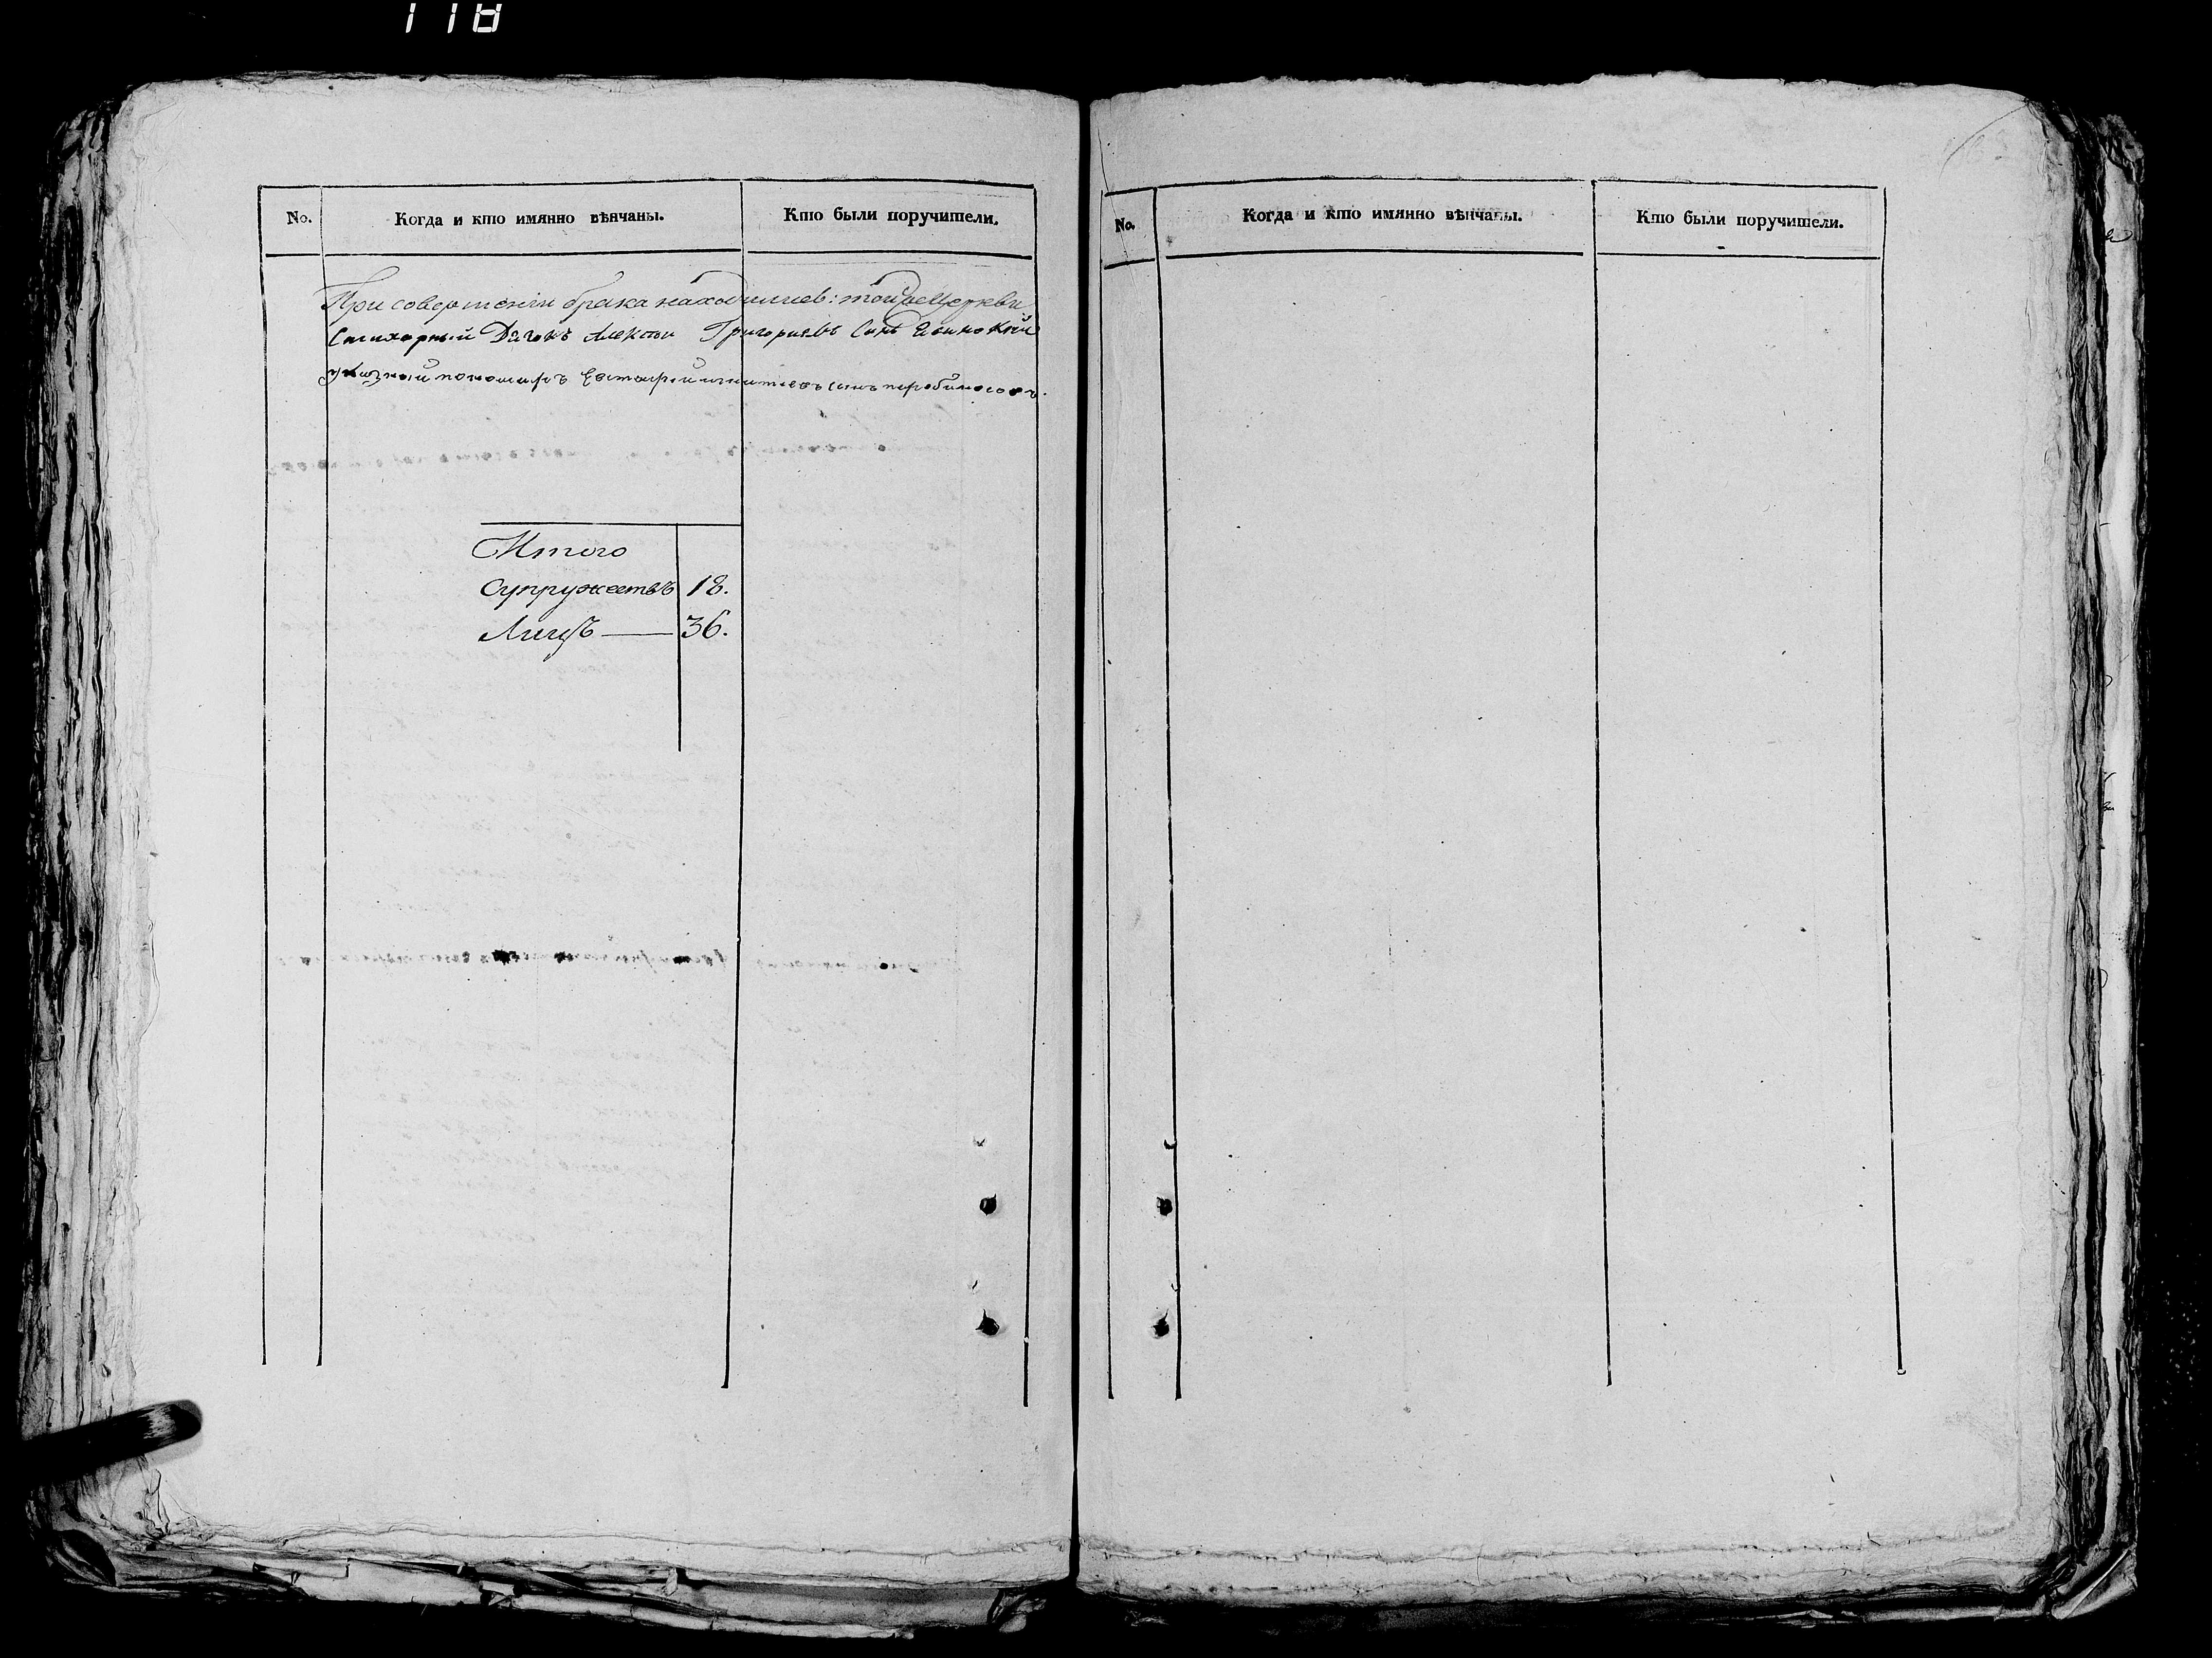 118
No. Когда и кто имянно вѣнчаны. Кто были поручители.
При совершеніи брака находились: тойже Церкви
Стихарный Дячокъ Алексѣй Григориевъ Сынъ
указный пономарь сынъ
Итого
Супружествъ 18.
Лицъ — 36.
No. Когда и кто имянно вѣнчаны. Кто были поручители.